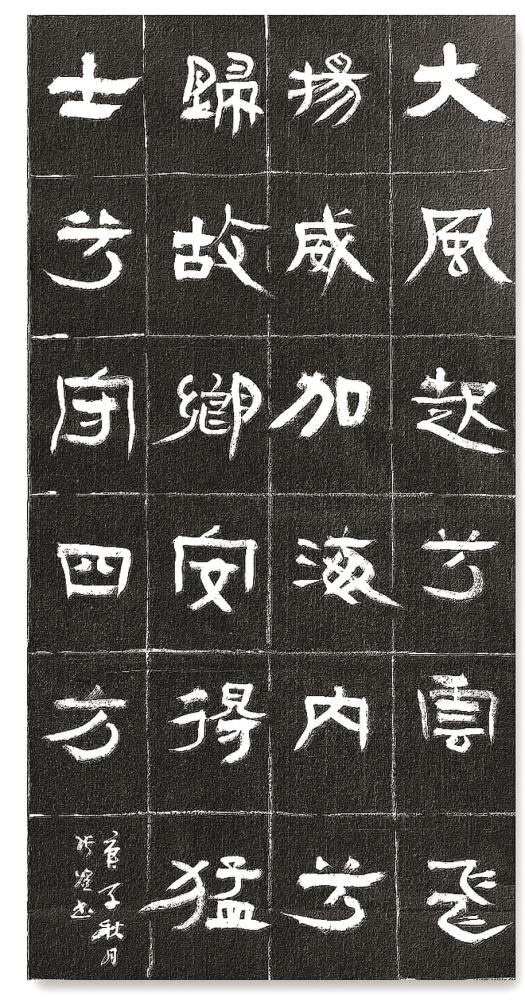 大風起兮雲飛
揚威加海内兮
歸故鄉安得猛
士兮守四方
庚子秋月